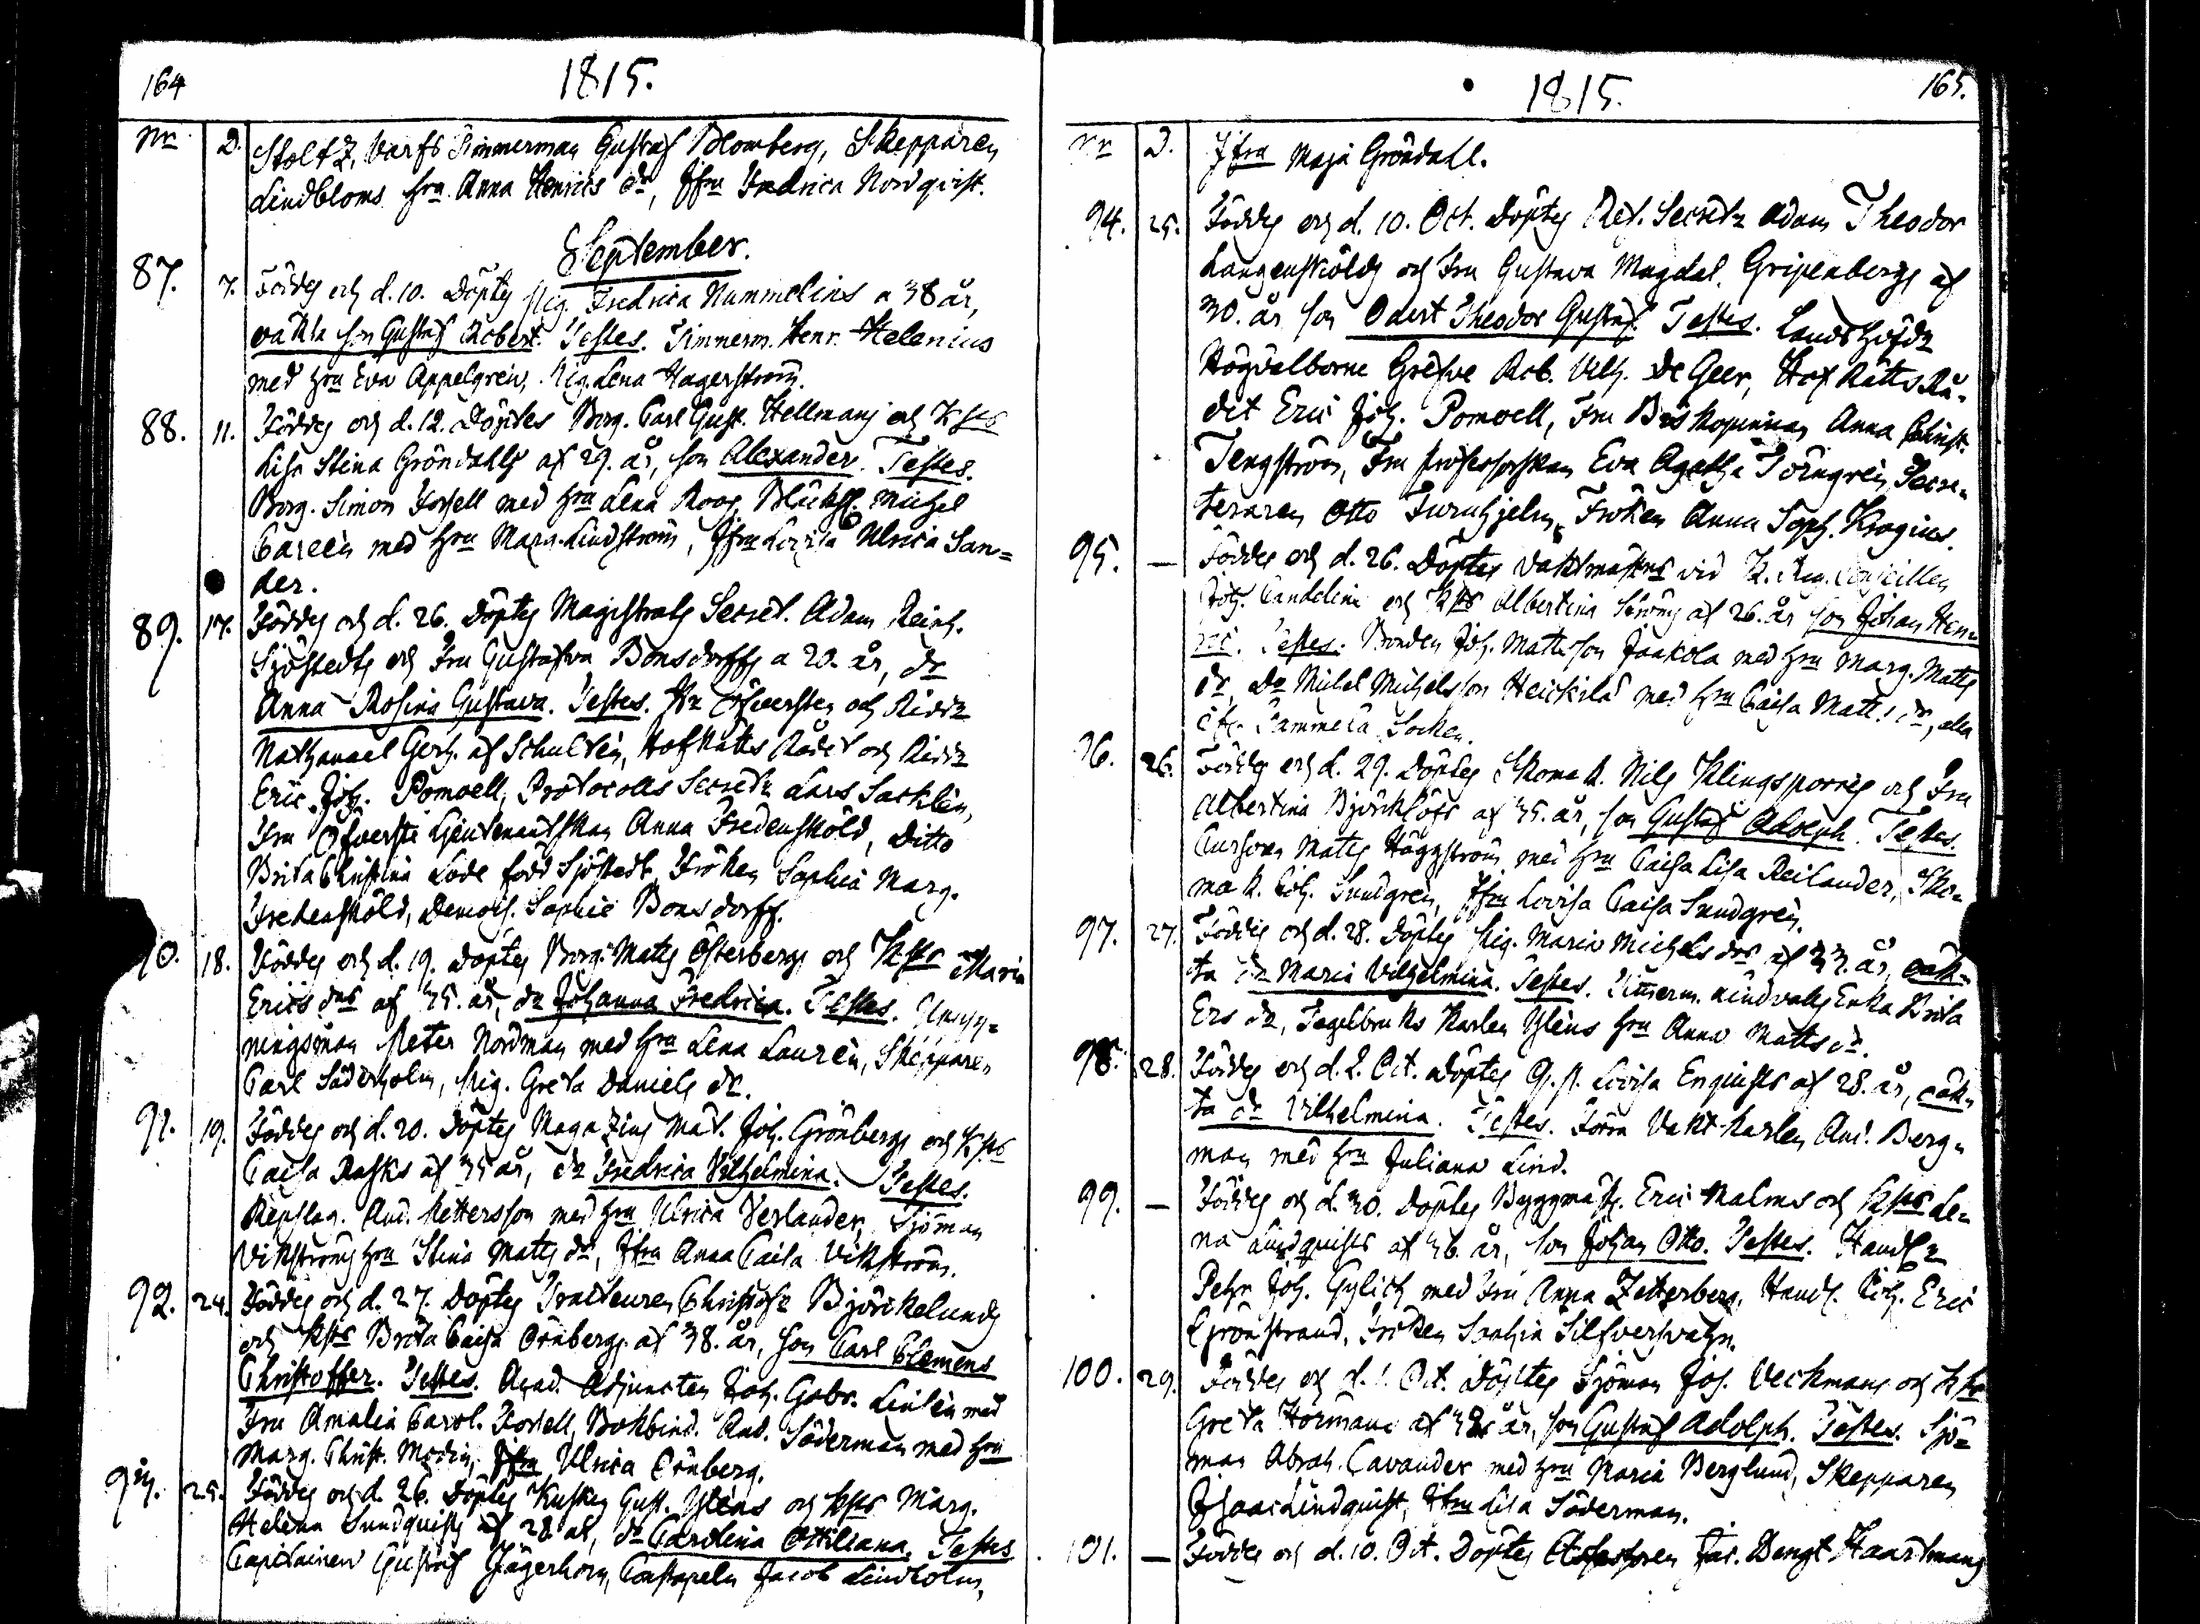 164
1815.
Nr D.
Stoltz, Varfs Timmerman Gustaf Blomberg, Skepparen
Lindbloms hru Anna Henrics dr, Jfru Fredrica Nordqvist.
September.
87. 7. Föddes och d. 10. Döptes Pig. Fredrica Nummelins a 38 år,
oäkta son Gustaf Robert. Testes. Timmerm. Henr. Helenius
med hru Eva Appelgren, Pig. Lena Hagerström.
88. 11. Föddes och d. 12. Döptes Borg. Carl Gust. Hellmans och K hrs
Lisa Stina Gröndahls af 29. år, son Alexander. Testes.
Borg. Simon Forsell med hru Lena Roos, Michel
Careen med hru Marg. Lindström, Jfru Lovisa Ulrica San=
der.
89. 17. Föddes och d. 26. Döptes Magistrats Secret. Adam Reinh.
Sjöstedts och Fru Gustafva Bonsdorffs a 20. år, dr
Anna Rosina Gustava. Testes. Hr Öfversten och Riddr
Nathanael Gerh. af Schultén, HofRätts Rådet och Riddr
Eric Joh. Pomoell, Protocolls Secretr Lars Sacklén,
Fru Öfverste Lieutenantskan Anna Fredensköld, Ditto
Brita Christina Lode född Sjöstedt, Fröken Sophia Marg.
Fredensköld, Demois. Sophie Bonsdorff.
90. 18. Föddes och d. 19. Döptes Borg. Matts Österbergs och K hrs Maria
Erics drs af 35. år, dr Johanna Fredrica. Testes.
ningsman Peter Nordman med hru Lena Laurén, Skepparen
Carl Söderholm, Pig. Greta Daniels dr.
91. 19. Föddes och d. 20. Döptes Magazins Mat. Joh. Grönbergs och K hrs
Caisa Rasks af 35 år, dr Fredrica Vilhelmina. Testes.
Repslag. And. Pettersson med hru Ulrica Verlander, Sjöman
Vikströms hru Stina Matts dr, Jfru Anna Caisa Vikström.
92. 24. Föddes och d. 27. Döptes Tracteuren Christofr Björkelunds
och K hrs Brita Caisa Örnbergs af 38. år, son Carl Clemens
Christoffer. Testes. Acad. Adjuncten Joh. Gabr. Linsén med
Fru Amalia Carol. Forsell, Bokbind. And. Söderman med hru
Marg. Christ. Modin, Jfru Ulrica Örnberg.
93. 25. Föddes och d. 26. Döptes Kusken Gust. Yléns och K hrs Marg.
Helena Sundquists af 28 år, dr Carolina Ottiliana. Testes
Capitainen Gustaf Jägerhorn, Constapeln Jacob Lindholm,
1815. 165.
Nr D. Jfru Maja Gröndahl.
94. 25. Föddes och d. 10. Oct. Döptes Ref. Secretr Adam Theodor
Langenskiölds och Fru Gustava Magdal. Gripenbergs af
30. år son Odert Theodor Gustaf. Testes. Landshöfdr
Högvälborne Grefve Rob. Vilh. De Geer, Hof Rätts Rå=
det Eric Joh. Pomoell, Fru Biskopinnan Anna Christ.
Tengström, Fru Professorskan Eva Agatha Törngren, Secre=
teraren Otto Furuhjelm, Fröken Anna Soph. Krogius.
95. — Föddes och d. 26. Döptes Vaktmästrs vid K. Reg. Conseillen
Joh. Candelins och K hrs Albertina af 26. år son Johan Hen=
ric. Testes. Bonden Joh. Mattsson Jaakola med hru Marg. Matts
dr, Do Michel Michelsson Heickilä med hru Caisa Matts dr, alla
Tammela Socken.
96. 26. Föddes och d. 29. Döptes Skomak. Nils Klingsporres och Fru
Albertina Björklöfs af 35. år, son Gustaf Adolph. Testes.
Cursorn Matts Häggström med hru Caisa Lisa Reilander, Sko=
mak. Joh. Sundgren, Jfru Lovisa Caisa Sundgren.
97. 27. Föddes och d. 28. Döptes Pig. Maria Michels drs af 33. år, oäk=
ta dr Maria Vilhelmina. Testes. Timmerm. Lindvalls Enka Brita
Ers dr, Tegelbruks Karlen Yléns hru Anna Matts dr.
98. 28. Föddes och d. 2. Oct. Döptes G. p. Lovisa Enquists af 28. år, oäk=
ta dr Vilhelmina. Testes. Förra Vakt-karlen And. Berg=
man med hru Juliana Lind.
99. — Föddes och d. 30. Döptes Byggmäst. Eric Malms och K hrs Le=
na Lindquists af 36. år, son Johan Otto. Testes. Handlr
Petr Joh. Gylich med Fru Anna Zetterberg, Handl. Joh. Eric
Grönstrand, Fröken Sophia Silfversvahn.
100. 29. Föddes och d. 1. Oct. Döptes Sjöman Joh. Veckmans och K hrs
Greta Hörmans af år, son Gustaf Adolph. Testes. Sjö=
man Abrah. Cavander med hru Maria Berglund, Skepparen
Isaac Lindquist, Jfru Lisa Söderman.
101. — Föddes och d. 10. Oct. Döptes Assessoren Jac. Bengt Haartmans